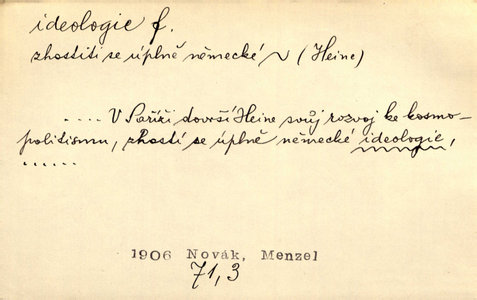 ideologie f.
zhostiti se úplně německé ~ (Heine)
.... V Paříži dovrší Heine svůj rozvoj ke kosmo-
politismu, zhostí se úplně německé ideologie,
......
1906 Novák, Menzel
71,3